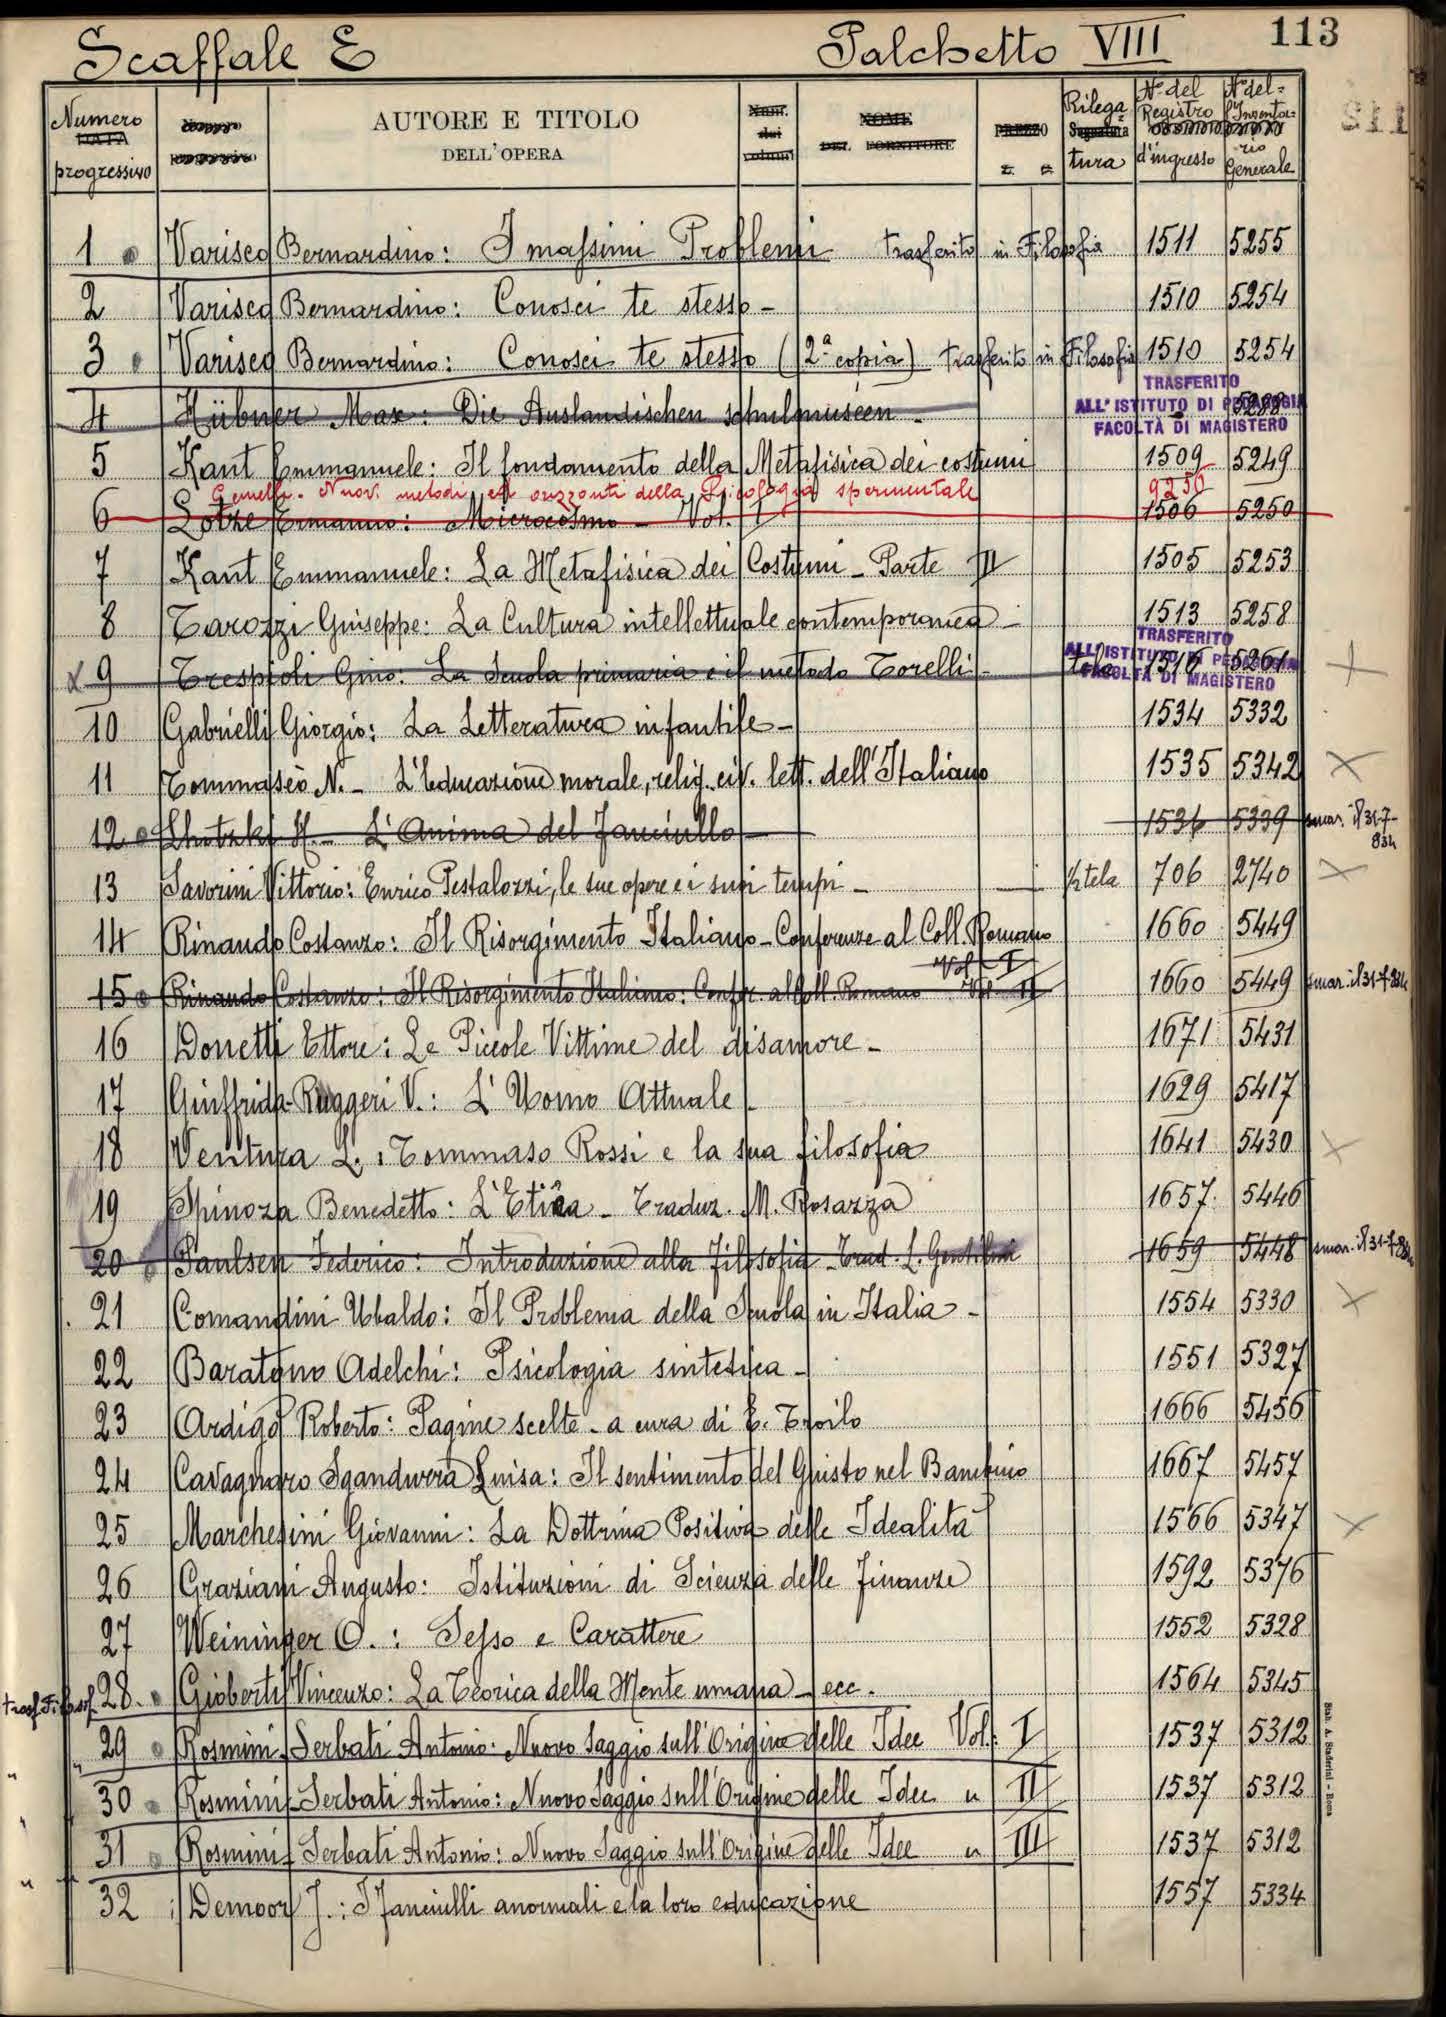 113
Scaffale E Palchetto VIII
Numero progressivo AUTORE E TITOLO DELL'OPERA Rilegatura N° del Registro d'ingresso N° del= l'Inventario Generale
1 Varisco Bernardino: I massimi Problemi trasferito in Filosofia 1511 5255
2 Varisco Bernardino: Conosci te stesso - 1510 5254
3 Varisco Bernardino: Conosci te stesso (2ª copia) trasferito in Filosofia 1510 5254
TRASFERITO
ALL'ISTITUTO DI PEDAGOGIA
FACOLTÀ DI MAGISTERO
4 Hübner Max: Die Auslandischen schulmuseen - 5288
5 Kant Emmanuele: Il fondamento della Metafisica dei costumi 1509 5249
Gemelli. Nuovi metodi ed orizzonti della Psicologia sperimentale 9250
6 Lotze Ermanno: Microcosmo - Vol. I 1506 5250
7 Kant Emmanuele: La Metafisica dei Costumi - Parte II 1505 5253
8 Tarozzi Guiseppe: La Cultura intellettuale contemporanea - 1513 5258
TRASFERITO
ALL'ISTITUTO DI PEDAGOGIA
FACOLTÀ DI MAGISTERO
9 Trespioli Gino. La Scuola primaria e il metodo Torelli - tela 1516 5261
10 Gabrielli Giorgio: La Letteratura infantile - 1534 5332
11 Tommaseo N. - L'educazione morale, relig. civ. lett. dell'Italiano 1535 5342
12 Lhotzki H. - L'Anima del Fanciullo - 1536 5339 smar. il 31-7-934
13 Savorini Vittorio: Enrico Pestalozzi, le sue opere e i suoi tempi - ½ tela 706 2740
14 Rinaudo Costanzo: Il Risorgimento Italiano - Conferenze al Coll. Romano Vol. I 1660 5449
15 Rinaudo Costanzo: Il Risorgimento Italiano: Confer. al Coll. Romano Vol II 1660 5449 smar. il 31-7-934
16 Donetti Ettore: Le Piccole Vittime del disamore - 1671 5431
17 Giuffrida-Ruggeri V.: L'Uomo Attuale - 1629 5417
18 Ventura L.: Tommaso Rossi e la sua filosofia 1641 5430
19 Spinoza Benedetto: L'Etica - Traduz. M. Rosazza 1657 5446
20 Paulsen Federico: Introduzione alla Filosofia - Trad. L. Gentilini 1659 5448 smar. il 31-7-934
21 Comandini Ubaldo: Il Problema della Scuola in Italia - 1554 5330
22 Baratono Adelchi: Psicologia sintetica - 1551 5327
23 Ardigò Roberto: Pagine scelte - a cura di E. Troilo 1666 5456
24 Cavagnaro Sgandurra Luisa: Il sentimento del Giusto nel Bambino 1667 5457
25 Marchesini Giovanni: La Dottrina Positiva delle Idealità 1566 5347
26 Graziani Augusto: Istituzioni di Scienza delle finanze 1592 5376
27 Weininger O.: Sesso e Carattere 1552 5328
trasf. Filosof. 28. Gioberti Vincenzo: La Teorica della Mente umana - ecc. 1564 5345
" 29 Rosmini Serbati Antonio: Nuovo Saggio sull'Origine delle Idee Vol. I 1537 5312
" 30 Rosmini-Serbati Antonio: Nuovo Saggio sull'Origine delle Idee " II 1537 5312
" 31 Rosmini-Serbati Antonio: Nuovo Saggio sull'Origine delle Idee " III 1537 5312
32 Demoor J.: I Fanciulli anormali e la loro educazione 1557 5334
Stab. A. Staderini - Roma